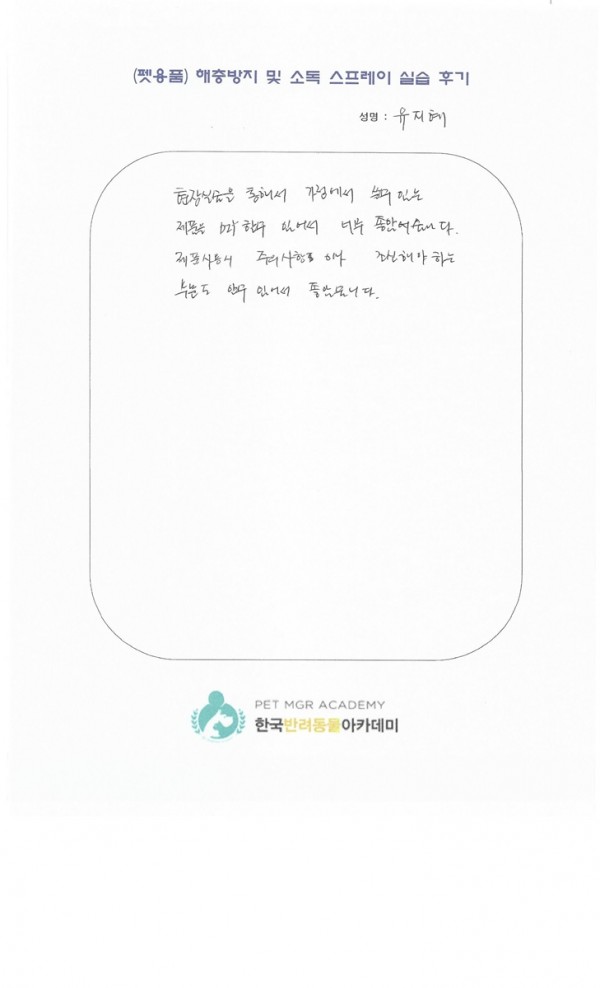 (펫용품) 해충방지 및 소독 스프레이 실습 후기
성명 : 유지혜
현장실습을 통해서 가정에서 쓸수 있는
제품을 할수 있어서 너무 좋았습니다.
제품사용시 주의사항 조심해야 하는
부분도 알수 있어서 좋았습니다.
PET MGR ACADEMY
한국반려동물아카데미